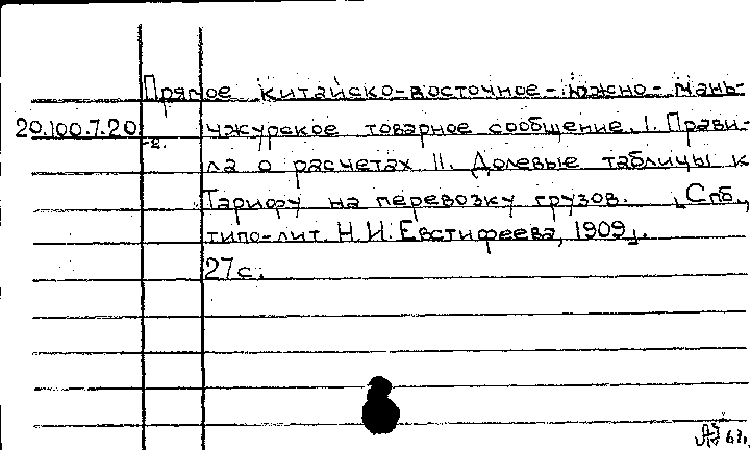 Прямое китайско-восточное-южно-мань-
20.100.7.20 чжурское товарное сообщение. I. Прави-
-2.
ла о расчетах II. Долевые таблицы к
Тарифу на перевозку грузов. [Спб.,
типо-лит. Н.И. Евстифеева, 1909].
27 с.